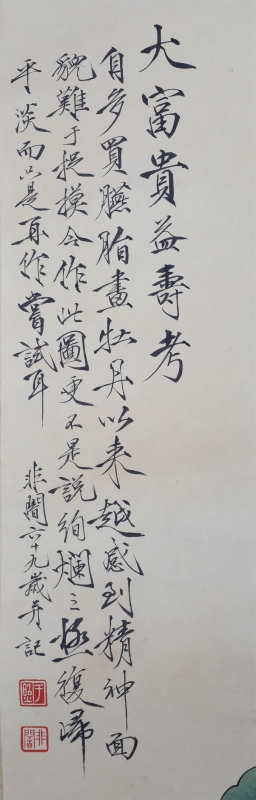 大富貴益壽考
自多買臙脂畫牡丹以来越感到精神面
貌難于捉摸今作此圖更不是説絢爛之極復歸
平淡而只是再作嘗試耳
非闇六十九歲并記
于照
非闇